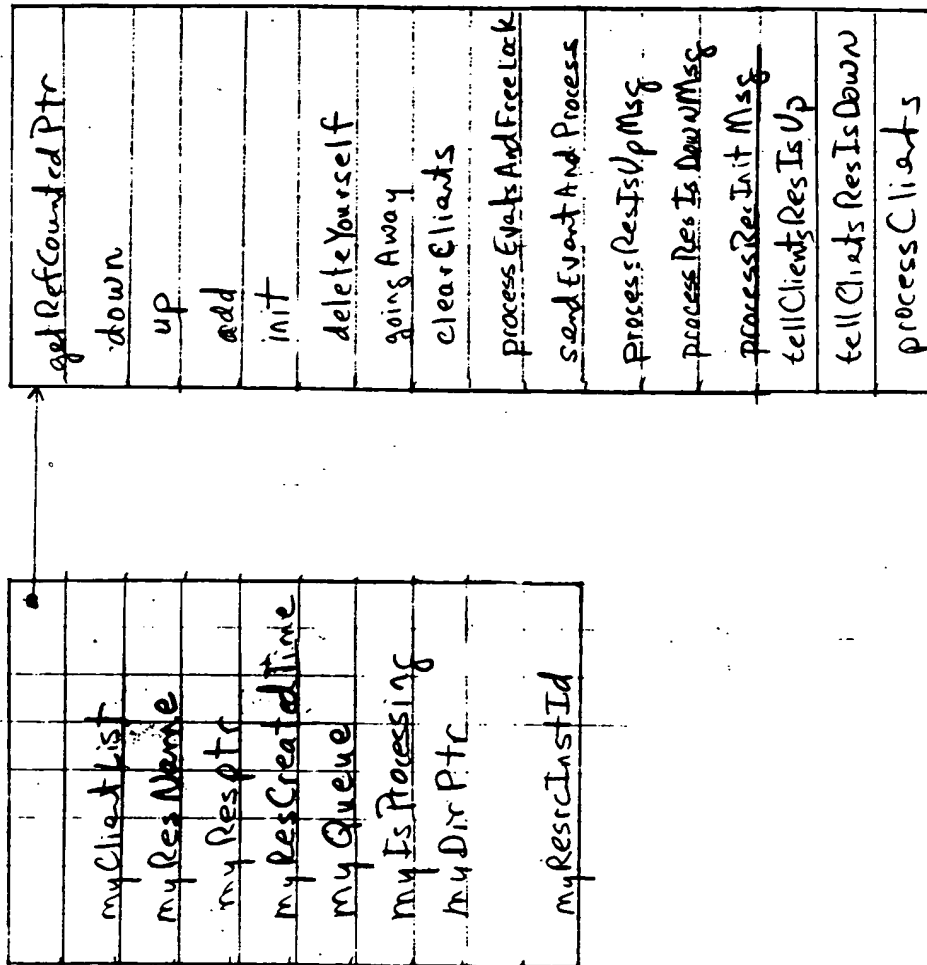 getRefCountedPtr
down
up
add
init
deleteYourself
goingAway
clearClients
processEventsAndFreeLock
sendEventAndProcess
processResIsUpMsg
processResIsDownMsg
processResInitMsg
tellClientsResIsUp
tellClientsResIsDown
processClients
myClientList
myResName
myResPtr
myResCreatedTime
myQueue
myIsProcessing
myDirPtr
myResrcInstId